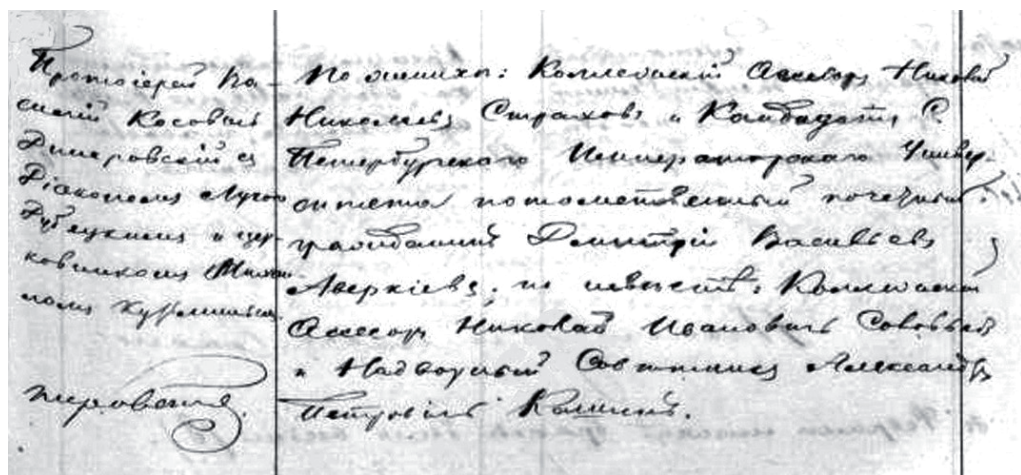 Протоіерей Ва-
силій Косовичъ
Димеровскій съ
Діакономъ Лукою
Дубецкимъ и цер-
ковникомъ Михаи-
ломъ
По женихѣ: Коллежскій Ассесоръ Николай
Николаевъ Страховъ и Кандидатъ С.
Петербургскаго Императорскаго Универ-
ситета потомственный почетный
гражданинъ Дмитрій Васильевъ
Аверкіевъ; по невѣстѣ: Коллежскій
Ассесоръ Николай Ивановичъ Соловьев
и Надворный Совѣтникъ Александръ
Петровичъ